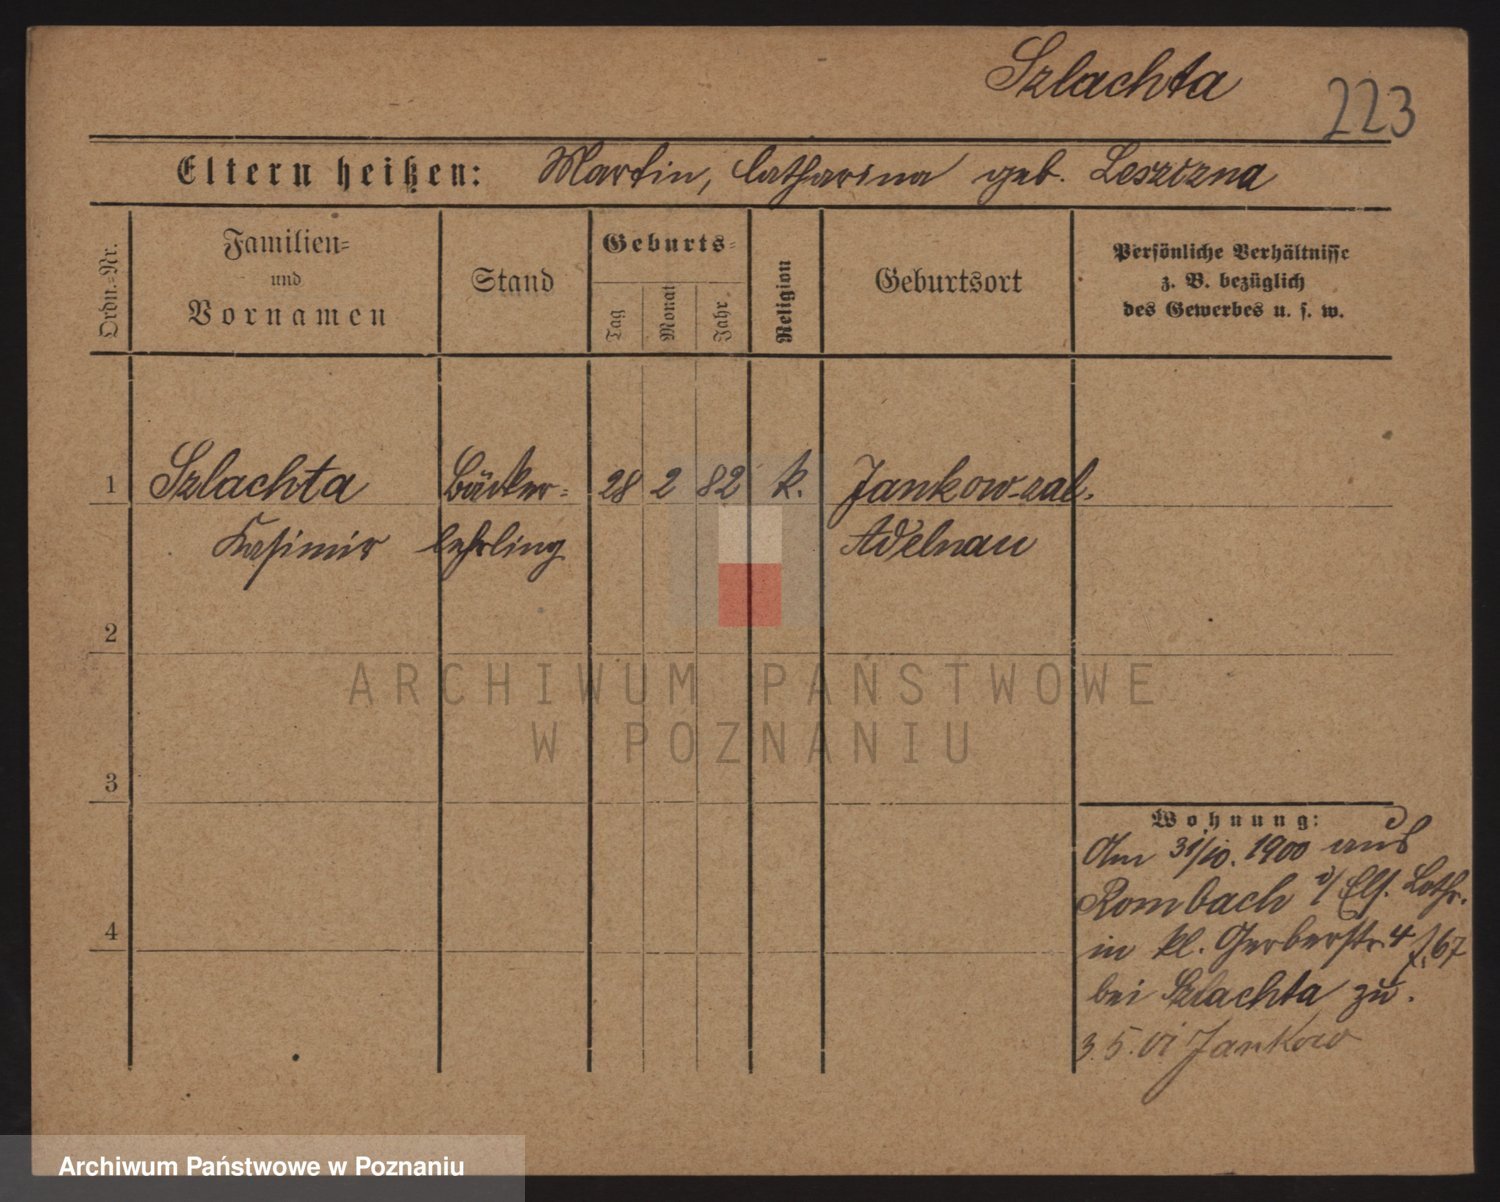 Szlachta
223
Eltern heißen: Martin, Catharina geb. Leszczna
Ordn.-Nr.
Familien-
und
Vornamen
Stand
Geburts-
Tag
Monat
Jahr
Religion
Geburtsort
Persönliche Verhältnisse
z. B. bezüglich
des Gewerbes u. s. w.
1 Szlachta Bäcker- 28 2 82 k. Jankow-zal.
Kasimir lehrling Adelnau
2
3
4
Wohnung:
Am 31/10. 1900 aus
Rombach i/ Els. Lothr.
in kl. Gerberstr. 4 f. 67
bei Szlachta zu.
3.5.01 Jankow
ARCHIWUM PAŃSTWOWE
W POZNANIU
Archiwum Państwowe w Poznaniu